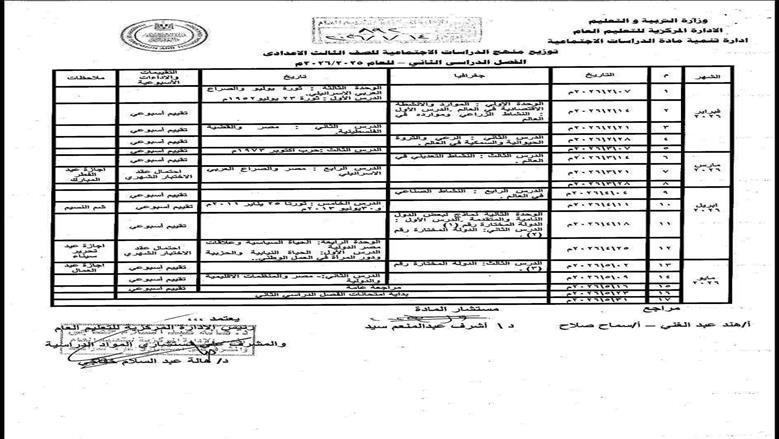 وزارة التربية و التعليم
الادارة المركزية للتعليم العام
ادارة تنمية مادة الدراسات الاجتماعية
توزيع منهج الدراسات الاجتماعية للصف الثالث الاعدادى
الفصل الدراسى الثاني – للعام ٢٠٢٦/٢٠٢٥م
الشهر م التاريخ جغرافيا تاريخ التقييمات والاداءات الأسبوعية ملاحظات
فبراير ٢٠٢٦
١ ٢٠٢٦/٢/٠٧م الوحدة الثالثة : ثورة يوليو والصراع العربي الاسرائيلي. الدرس الأول : ثورة ٢٣ يوليو ١٩٥٢م
٢ ٢٠٢٦/٢/١٤م الوحدة الأولي : الموارد والأنشطة الاقتصادية في العالم .الدرس الأول : النشاط الزراعي وموارده في العالم تقييم أسبوعي
٣ ٢٠٢٦/٢/٢١م الدرس الثاني : مصر والقضية الفلسطينية. تقييم أسبوعي
٤ ٢٠٢٦/٢/٢٨م الدرس الثاني : الرعي والثروة الحيوانية والسمكية في العالم . تقييم أسبوعي
مارس ٢٠٢٦
٥ ٢٠٢٦/٣/٠٧م الدرس الثالث :حرب أكتوبر ١٩٧٣م تقييم أسبوعي
٦ ٢٠٢٦/٣/١٤م الدرس الثالث : النشاط التعديني في العالم . تقييم أسبوعي
٧ ٢٠٢٦/٣/٢١م الدرس الرابع : مصر والصراع العربي الاسرائيلي احتمال عقد الاختبار الشهري اجازة عيد الفطر المبارك
٨ ٢٠٢٦/٣/٢٨م
ابريل ٢٠٢٦
٩ ٢٠٢٦/٤/٠٤م الدرس الرابع : النشاط الصناعي في العالم . تقييم أسبوعي
١٠ ٢٠٢٦/٤/١١م الدرس الخامس : ثورتا ٢٥ يناير ٢٠١١م و٣٠يونيو ٢٠١٣م تقييم أسبوعي شم النسيم
١١ ٢٠٢٦/٤/١٨م الوحدة الثانية نماذج لبعض الدول النامية والمتقدمة .الدرس الأول : الدولة المختارة رقم (١) الدرس الثاني: الدولة المختارة رقم (٢) . تقييم أسبوعي
١٢ ٢٠٢٦/٤/٢٥م الوحدة الرابعة: الحياة السياسية وعلاقات مصر الدولية الدرس الأول: الحياة النيابية والحزبية ودور المرأة في العمل الوطني.. احتمال عقد الاختبار الشهري اجازة عيد تحرير سيناء
مايو ٢٠٢٦
١٣ ٢٠٢٦/٥/٠٢م الدرس الثالث: الدولة المختارة رقم (٣) . تقييم أسبوعي اجازة عيد العمال
١٤ ٢٠٢٦/٥/٠٩م الدرس الثاني:- مصر والمنظمات الاقليمية والدولية تقييم أسبوعي
١٥ ٢٠٢٦/٥/١٦م مراجعة عامة تقييم أسبوعي
١٦ ٢٠٢٦/٥/٢٣م بداية امتحانات الفصل الدراسي الثاني
١٧ ٢٠٢٦/٥/٣١م
مراجع
أ/هند عبد الغني – أ/سماح صلاح
مستشار المادة
د.أ أشرف عبدالمنعم سيد
يعتمد ...
رئيس الإدارة المركزية للتعليم العام
والمشرف على مستشاري المواد الدراسية
د/ هالة عبد السلام خفاجي